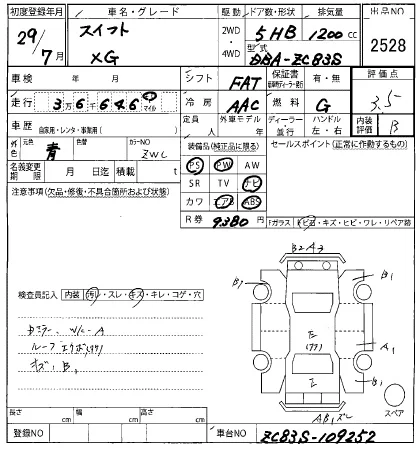 初度登録年月 車名・グレード 駆動 ドア数・形状 排気量 出品NO
29/7月 スイフト XG 2WD・4WD 5HB 1200cc 2528
型式 DBA-ZC83S
車検 年 月 シフト FAT 保証書 有・無 評価点
走行 36646 km マイル 冷房 AAC 燃料 G 3.5
車歴 自家用・レンタ・事業用( ) 定員 人 外車モデル年 ディーラー・並行 ハンドル 左・右 内装評価 B
外色 元色 青 色替 カラーNO ZWL 装備品(純正品に限る) セールスポイント(正常に動作するもの)
名義変更期限 月 日迄 積載 t PS PW AW
注意事項(欠品・修復・不具合箇所および状態) SR TV ナビ
カワ エアB ABS
R券 9380円 Fガラス トビ石・キズ・ヒビ・ワレ・リペア跡
B2A3
B1 B1
検査員記入 内装 汚レ・スレ・キズ・キレ・コゲ・穴
Dミラー W/C-A A1
ルーフ エクボ(タタ)
キズ、B、 B1
AB1ズレ スペア
長さ cm 幅 cm 高さ cm
登録NO 車台NO ZC83S-109252